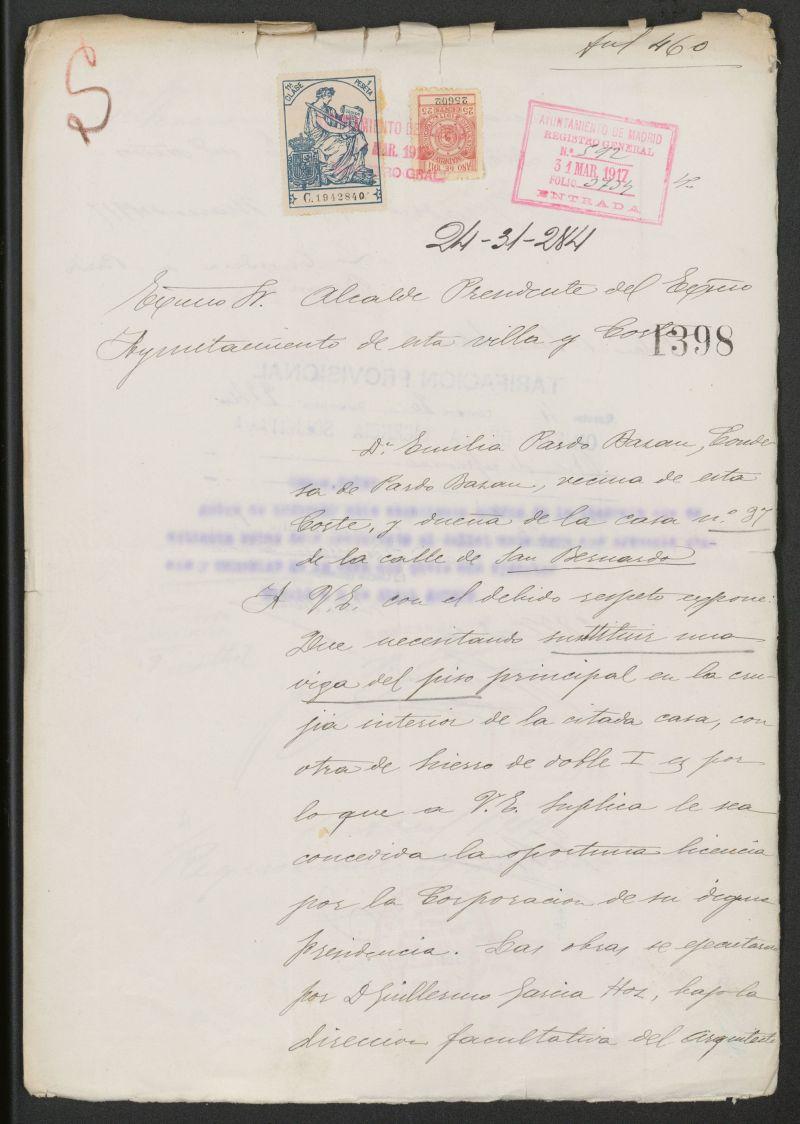 S
11ª CLASE
1 PESETA
C.1942840
25602
25 CENTS 25
AÑO DE 1917
AYUNTAMIENTO DE MADRID
REGISTRO GENERAL
N.º 592
31 MAR. 1917
FOLIO
ENTRADA
460
24-31-284
Excmo Sr. Alcalde Presidente del Excmo
Ayuntamiento de esta villa y Corte
1398
TARIFACION PROVISIONAL
Dª Emilia Pardo Bazan, Conde-
sa de Pardo Bazan, vecina de esta
Corte, y dueña de la casa nº 37
de la calle de San Bernardo
A V.E. con el debido respeto expone:
Que necesitando sustituir una
viga del piso principal en la cru-
jia interior de la citada casa, con
otra de hierro de doble I es por
lo que a V.E. suplica le sea
concedida la oportuna licencia
por la Corporacion de su digna
presidencia. Las obras se ejecutaran
por D Guillermo Garcia Hoz, bajo la
direccion facultativa del arquitecto